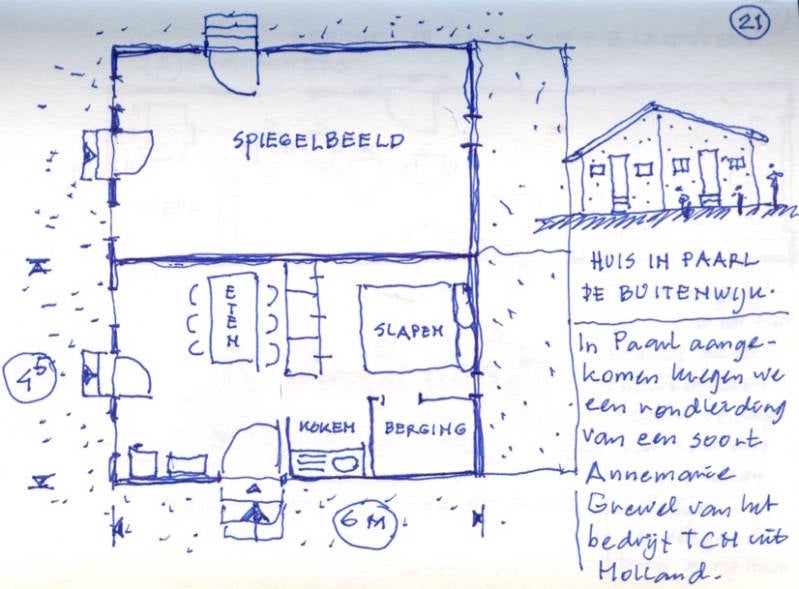 21
SPIEGELBEELD
ETEN
SLAPEN
KOKEN
BERGING
4⁵
6 M
HUIS IN PAARL
DE BUITENWIJK.
In Paarl aange-
komen kregen we
een rondleiding
van een soort
Annemarie
Grewel van het
bedrijf TCH uit
Holland.